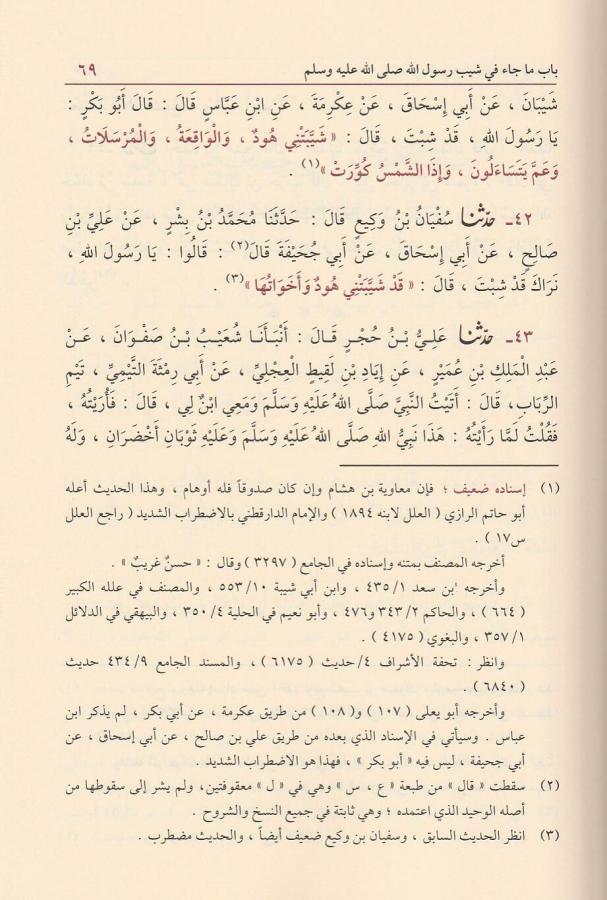 باب ما جاء في شيب رسول الله صلى الله عليه وسلم ٦٩
شَيْبَانَ ، عَنْ أَبِي إِسْحَاقَ ، عَنْ عِكْرِمَةَ ، عَنِ ابْنِ عَبَّاسٍ قَالَ : قَالَ أَبُو بَكْرٍ :
يَا رَسُولَ اللهِ ، قَدْ شِبْتَ ، قَالَ : « شَيَّبَتْنِي هُودٌ ، وَالْوَاقِعَةُ ، وَالْمُرْسَلَاتُ ،
وَعَمَّ يَتَسَاءَلُونَ ، وَإِذَا الشَّمْسُ كُوِّرَتْ »(١) .
٤٢ـ حَدَّثَنَا سُفْيَانُ بْنُ وَكِيعٍ قَالَ : حَدَّثَنَا مُحَمَّدُ بْنُ بِشْرٍ ، عَنْ عَلِيِّ بْنِ
صَالِحٍ ، عَنْ أَبِي إِسْحَاقَ ، عَنْ أَبِي جُحَيْفَةَ قَالَ(٢) : قَالُوا : يَا رَسُولَ اللهِ ،
نَرَاكَ قَدْ شِبْتَ ، قَالَ : « قَدْ شَيَّبَتْنِي هُودٌ وَأَخَوَاتُهَا »(٣) .
٤٣ـ حَدَّثَنَا عَلِيُّ بْنُ حُجْرٍ قَالَ : أَنْبَأَنَا شُعَيْبُ بْنُ صَفْوَانَ ، عَنْ
عَبْدِ الْمَلِكِ بْنِ عُمَيْرٍ ، عَنْ إِيَادِ بْنِ لَقِيطٍ الْعِجْلِيِّ ، عَنْ أَبِي رِمْثَةَ التَّيْمِيِّ ، تَيْمِ
الرِّبَابِ، قَالَ : أَتَيْتُ النَّبِيَّ صَلَّى اللهُ عَلَيْهِ وَسَلَّمَ وَمَعِي ابْنٌ لِي ، قَالَ : فَأُرِيتُهُ ،
فَقُلْتُ لَمَّا رَأَيْتُهُ : هَذَا نَبِيُّ اللهِ صَلَّى اللهُ عَلَيْهِ وَسَلَّمَ وَعَلَيْهِ ثَوْبَانِ أَخْضَرَانِ ، وَلَهُ
(١) إسناده ضعيف ؛ فإن معاوية بن هشام وإن كان صدوقاً فله أوهام ، وهذا الحديث أعله
أبو حاتم الرازي ( العلل لابنه ١٨٩٤ ) والإمام الدارقطني بالاضطراب الشديد ( راجع العلل
س١٧ ) .
أخرجه المصنف بمتنه وإسناده في الجامع ( ٣٢٩٧ ) وقال : « حسنٌ غريبٌ » .
وأخرجه ابن سعد ١/ ٤٣٥ ، وابن أبي شيبة ١٠/ ٥٥٣ ، والمصنف في علله الكبير
( ٦٦٤ ) ، والحاكم ٢/ ٣٤٣ و٤٧٦ ، وأبو نعيم في الحلية ٤/ ٣٥٠ ، والبيهقي في الدلائل
١/ ٣٥٧ ، والبغوي ( ٤١٧٥ ) .
وانظر : تحفة الأشراف ٤/حديث ( ٦١٧٥ ) ، والمسند الجامع ٩/ ٤٣٤ حديث
( ٦٨٤٠ ) .
وأخرجه أبو يعلى ( ١٠٧ ) و( ١٠٨ ) من طريق عكرمة ، عن أبي بكر ، لم يذكر ابن
عباس . وسيأتي في الإسناد الذي بعده من طريق علي بن صالح ، عن أبي إسحاق ، عن
أبي جحيفة ، ليس فيه « أبو بكر » ، فهذا هو الاضطراب الشديد .
(٢) سقطت « قال » من طبعة « ع ، س » وهي في « ل » معقوفتين، ولم يشر إلى سقوطها من
أصله الوحيد الذي اعتمده ؛ وهي ثابتة في جميع النسخ والشروح .
(٣) انظر الحديث السابق ، وسفيان بن وكيع ضعيف أيضاً ، والحديث مضطرب .